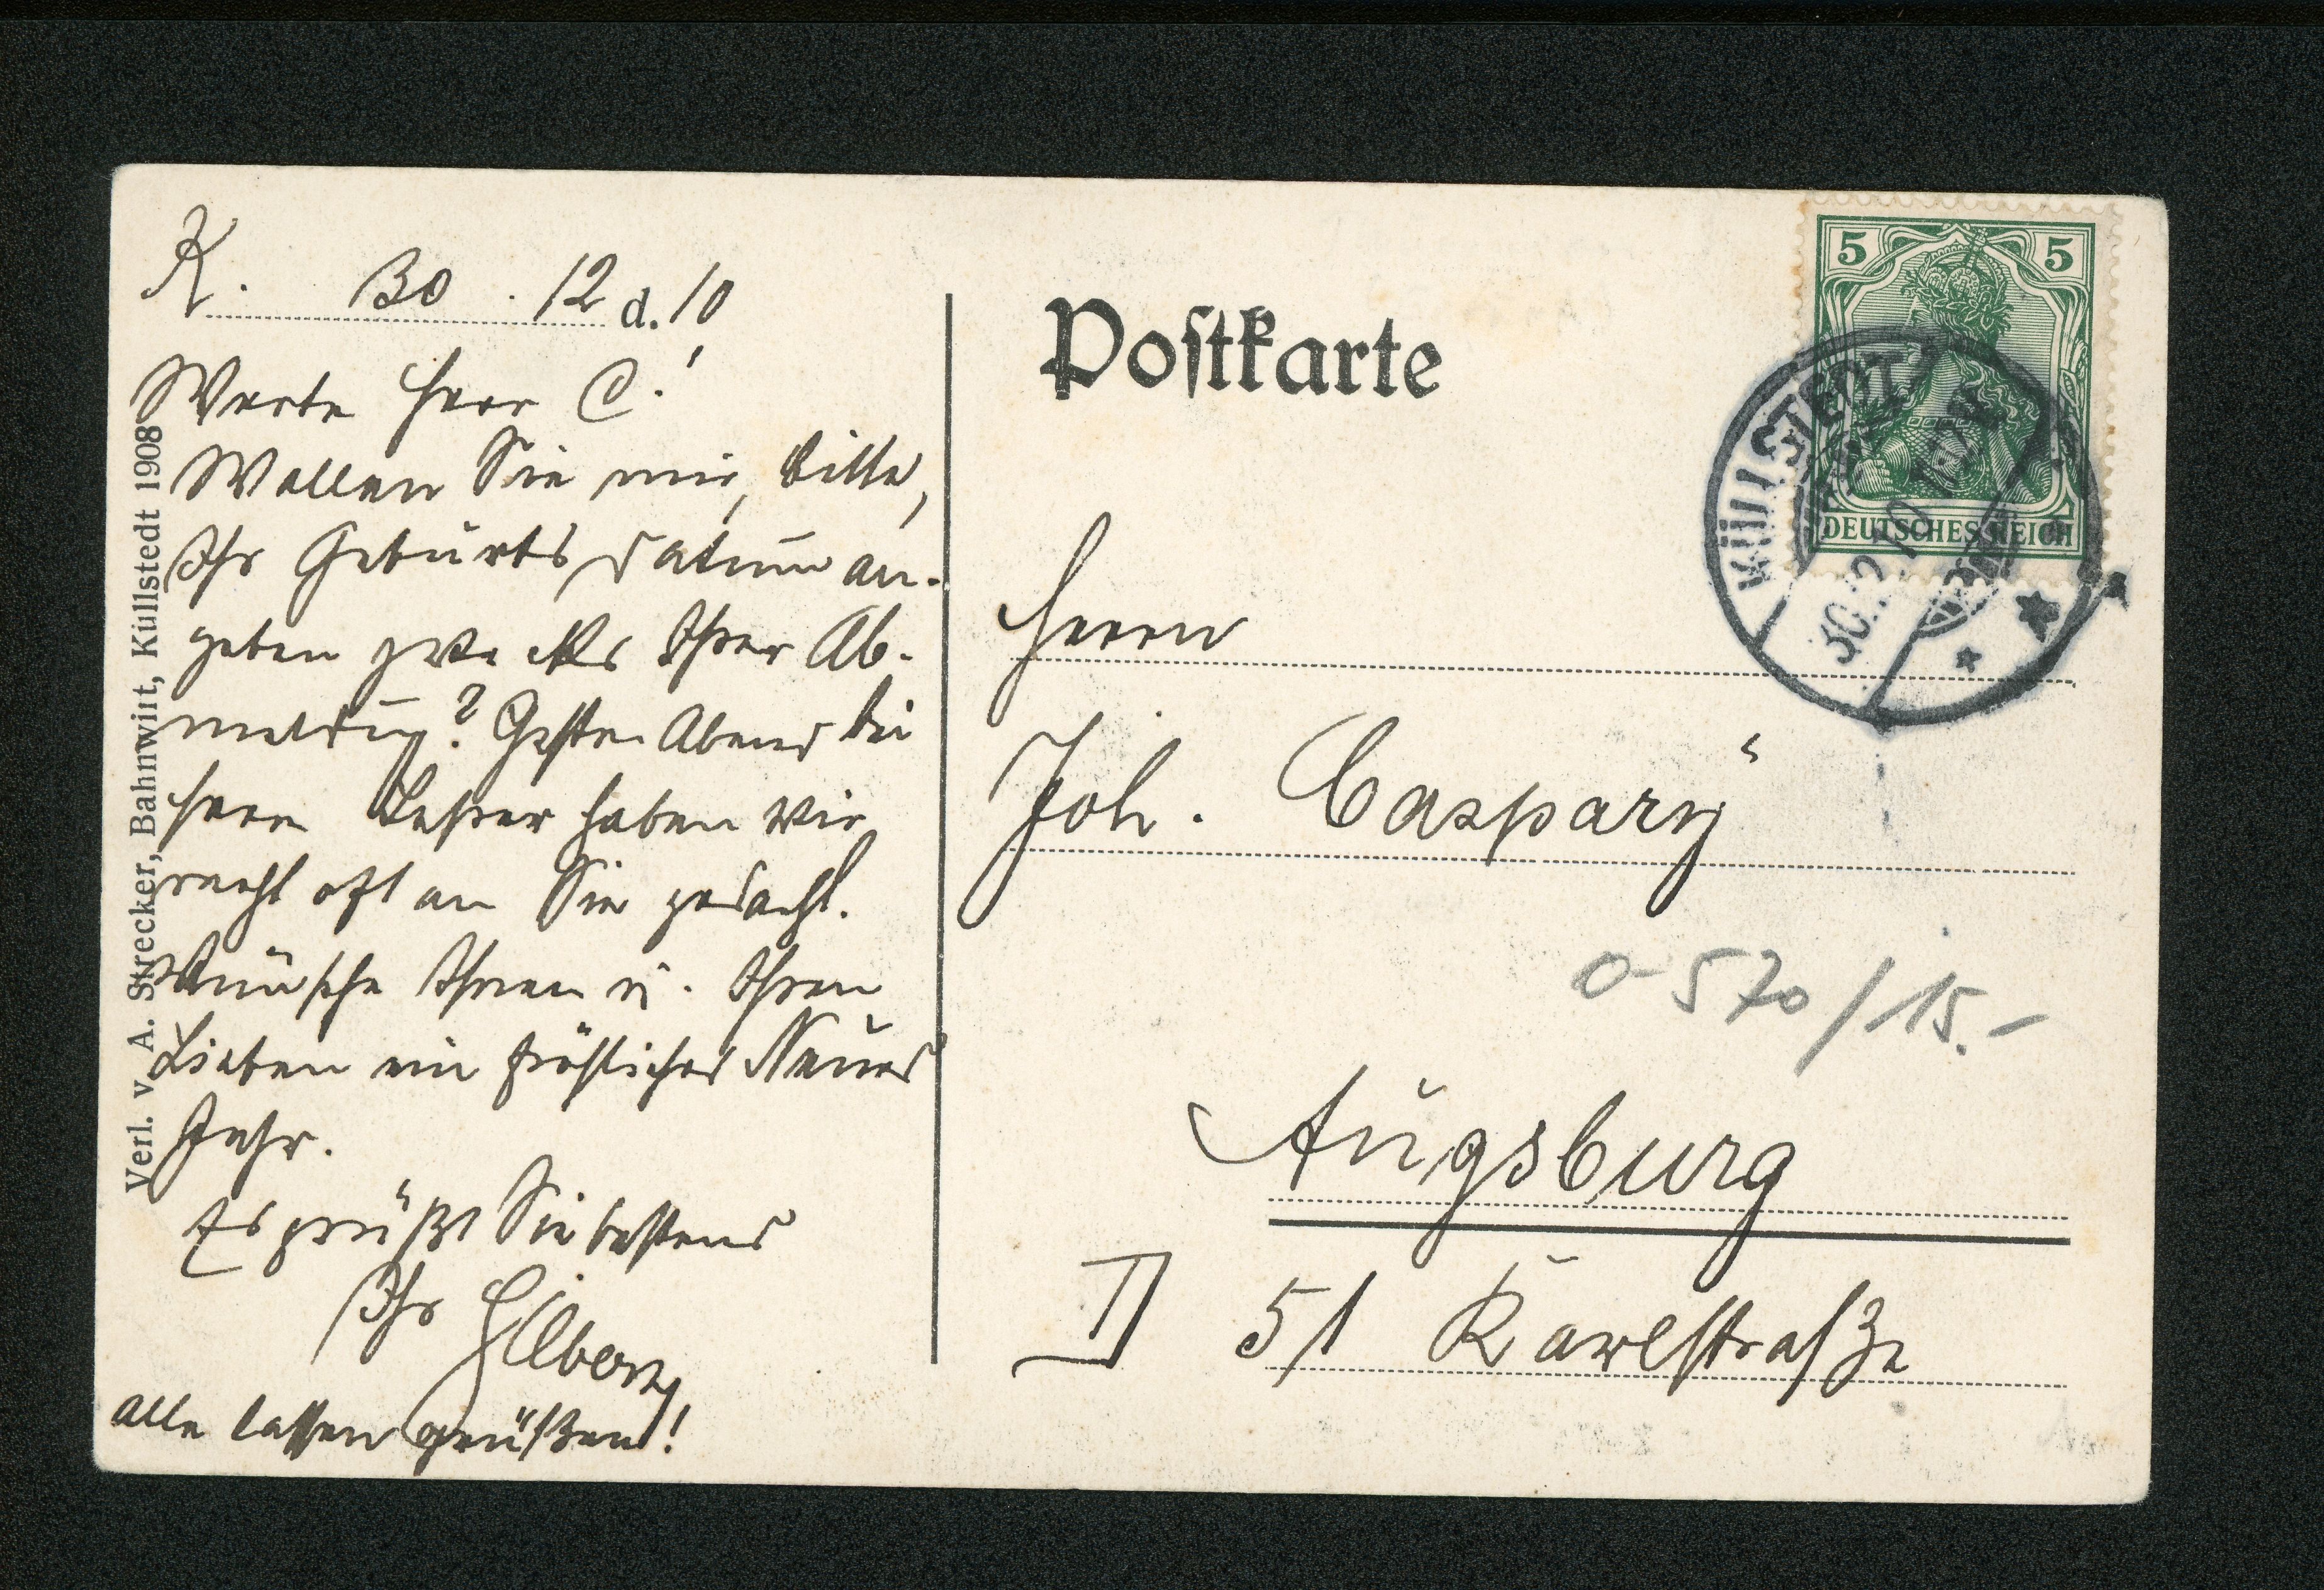 K. 30. 12 d. 10
Werte Herr C.!
Wollen Sie mir, bitte,
Ihr Geburtsdatum an-
geben zwecks Ihrer Ab-
meldung? Gestern Abend bei
Herrn Lehrer haben wir
recht oft an Sie gedacht.
Wünsche Ihnen u. Ihren
Lieben ein fröhliches Neues
Jahr.
Es grüßt Sie bestens
Ihr
alle lassen grüßen!
Verl. v. A. Strecker, Bahnwirt, Küllstedt 1908
Postkarte
5 5
DEUTSCHES REICH
KÜLLSTEDT
30.12.10
Herrn
Joh. Caspary
0-570/15.-
Augsburg
D 51 Karolstraße